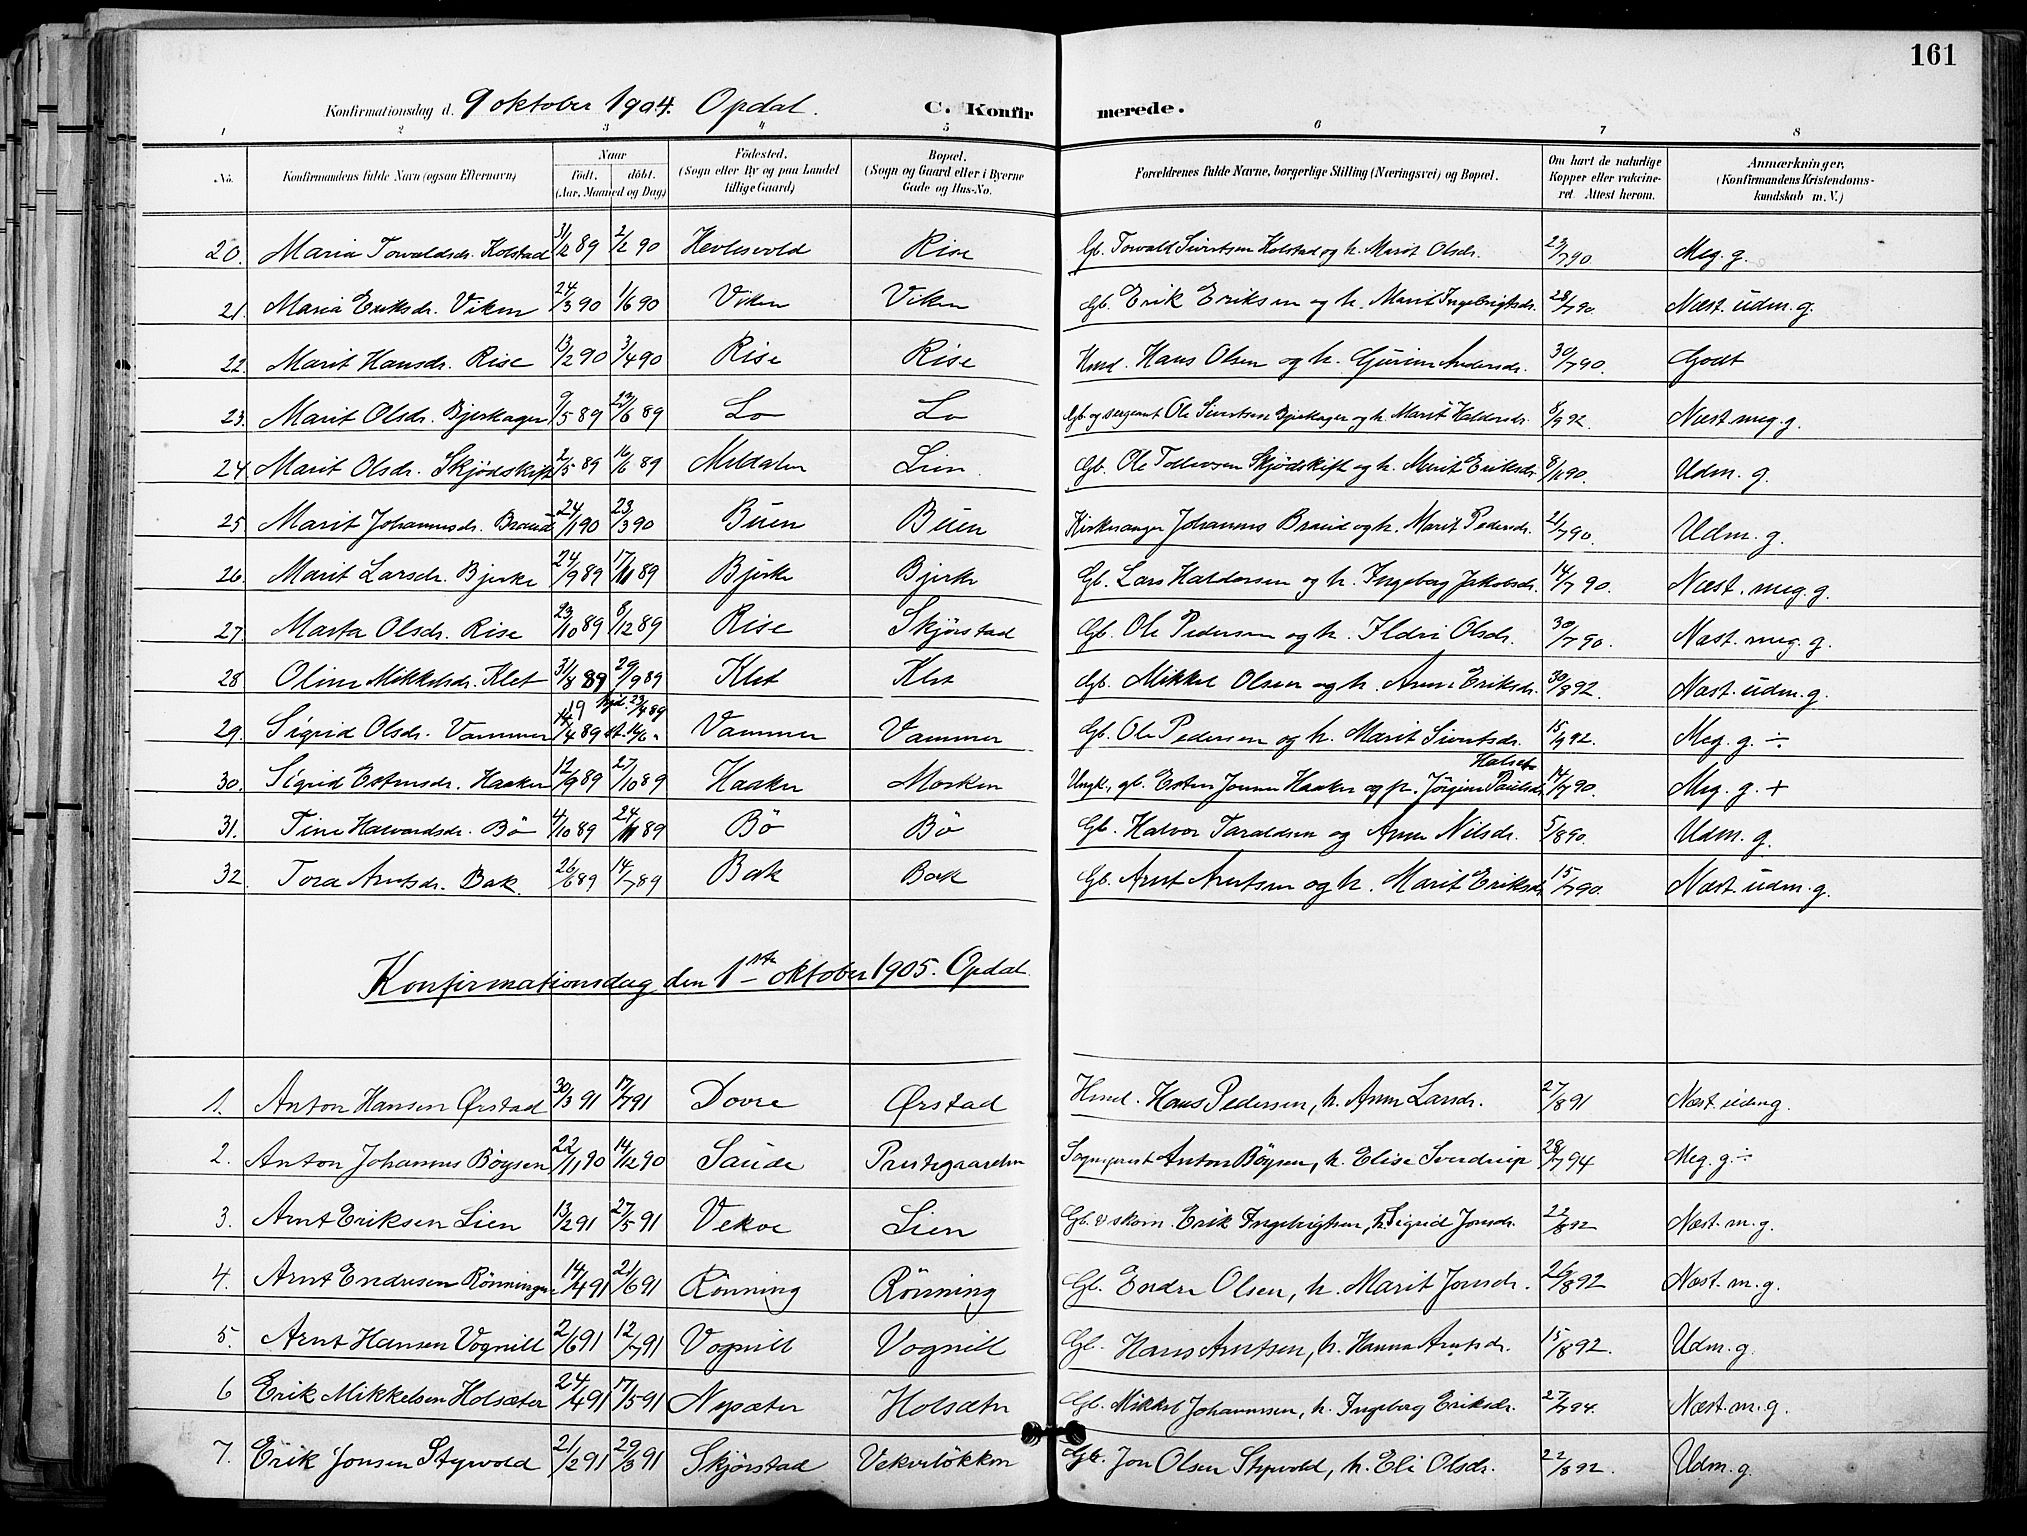 161
Konfirmationsdag d. 9 oktober 1904. Opdal. C. Konfirmerede.
1 2 3 4 5 6 7 8
No. Konfirmandens fulde Navn (ogsaa Efternavn) Naar födt. döbt. (Aar, Maaned og Dag) Födested. (Sogn eller By og paa Landet tillige Gaard) Bopæl. (Sogn og Gaard eller i Byerne Gade og Hus-No. Forældrenes fulde Navne, borgerlige Stilling (Næringsvei) og Bopæl. Om havt de naturlige Kopper eller vakcineret. Attest herom. Anmærkninger, (Konfirmandens Kristendomskundskab m. V.)
20. Maria Torvaldsdr. Kolstad 31/12 89 2/2 90 Hevlesvold Rise Gb. Torvald Sivertsen Kolstad og h. Marit Olsdr. 23/7 90 Meg. g.
21. Maria Eriksdr. Viken 24/3 90 1/6 90 Viken Viken Gb. Erik Eriksen og h. Marit Ingebrigtsdr. 28/7 90. Næst. udm. g.
22. Marit Hansdr. Rise 13/2 90 3/4 90 Rise Rise Hmd. Hans Olsen og h. Gurine Andersdr. 30/7 90. Godt
23. Marit Olsdr. Bjerkager 9/5 89 29/6 89 Lo Lo Gb. og sergeant Ole Sivertsen Bjerkager og h. Marit Haldorsdr. 8/9 92. Næst. meg. g.
24. Marit Olsdr. Skjødskift 2/5 89 16/6 89 Meldalen Lien Gb. Ole Tollevsen Skjødskift og h. Marit Eriksdr. 8/11 90. Udm. g.
25. Marit Johannesdr. Braut 24/1 90 23/3 90 Buen Buen Kirkesanger Johannes Braut og h. Marit Pedersdr. 21/7 90. Udm. g.
26. Marit Larsdr. Bjerke 24/9 89 17/11 89 Bjerke Bjerke Gb. Lars Haldorsen og h. Ingeborg Jakobsdr. 14/7 90. Næst. meg. g.
27. Marta Olsdr. Rise 23/10 89 8/12 89 Rise Skjørstad Gb. Ole Pedersen og h. Ildri Olsdr. 30/7 90. Næst. meg. g.
28 Oline Mikkelsdr. Klet 31/8 89 29/9 89 Klet Klet Gb. Mikkel Olsen og h. Anne Eriksdr. 30/8 92. Næst. udm. g.
29. Sigrid Olsdr. Vammer 14/4 89 19 hjd. 23/4 89 st. 16/6 " Vammer Vammer Gb. Ole Pedersen og h. Marit Sivertsdr. 15/9 92. Meg. g. ÷
30. Sigrid Estensdr. Haaker 12/9 89 27/10 89 Haaker Morken Ungk., gb. Esten Jonsen Haaker og p. Jørgine Paulsdr. Halseth 14/7 90. Meg. g. +
31. Tine Halvardsdr. Bö 4/10 89 24/11 89 Bö Bö Gb. Halvor Taraldsen og Anne Nilsdr. 5/8 90. Udm. g.
32. Tora Arntsdr. Bak. 26/6 89 14/7 89 Bak Bak Gb. Arnt Arntsen og h. Marit Eriksdr. 15/7 90. Næst. udm. g.
Konfirmationsdag den 1ste oktober 1905. Opdal.
1. Anton Hansen Ørstad 30/3 91 17/7 91 Dovre Ørstad Hmd. Hans Pedersen, h. Anne Larsdr. 27/8 91 Næst. udm g.
2. Anton Johannes Böysen 22/11 90 14/12 90 Saude Prestegaarden Sogneprest Anton Böysen, h. Elise Sverdrup 28/7 94 Meg. g. ÷
3. Arnt Eriksen Lien 13/2 91 27/5 91 Vekve Lien Gb. & skom. Erik Ingebrigtsen, h. Sigrid Jonsdr. 22/8 92 Næst. m. g.
4. Arnt Endresen Rönningen 14/4 91 21/6 91 Rönning Rönning Gb. Endre Olsen, h. Marit Jonsdr. 26/8 92 Næst. m. g.
5. Arnt Hansen Vognill 2/6 91 12/7 91 Vognill Vognill Gb. Hans Arntsen, h. Hanna Arntsdr. 15/8 92. Udm. g.
6 Erik Mikkelsen Holsæter 24/4 91 17/5 91 Nysæter Holsæter Gb. Mikkel Johannessen, h. Ingeborg Eriksdr. 27/7 94. Næst. m. g.
7. Erik Jonsen Styvold 21/2 91 29/3 91 Skjørstad Vekveløkken Gb. Jon Olsen Styvold, h. Eli Olsdr. 22/8 92. Udm. g.